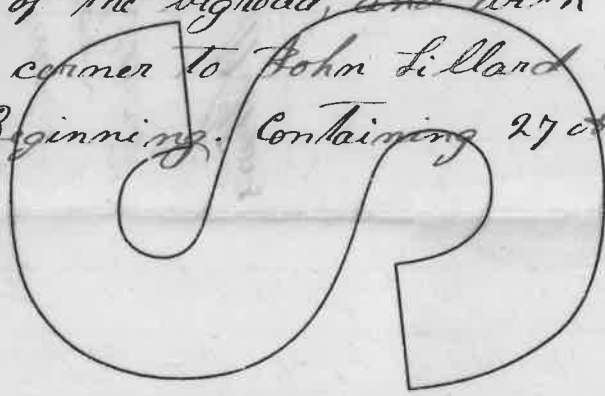 of the bigroad, and with
corner to John Lillard
Beginning. Containing 27